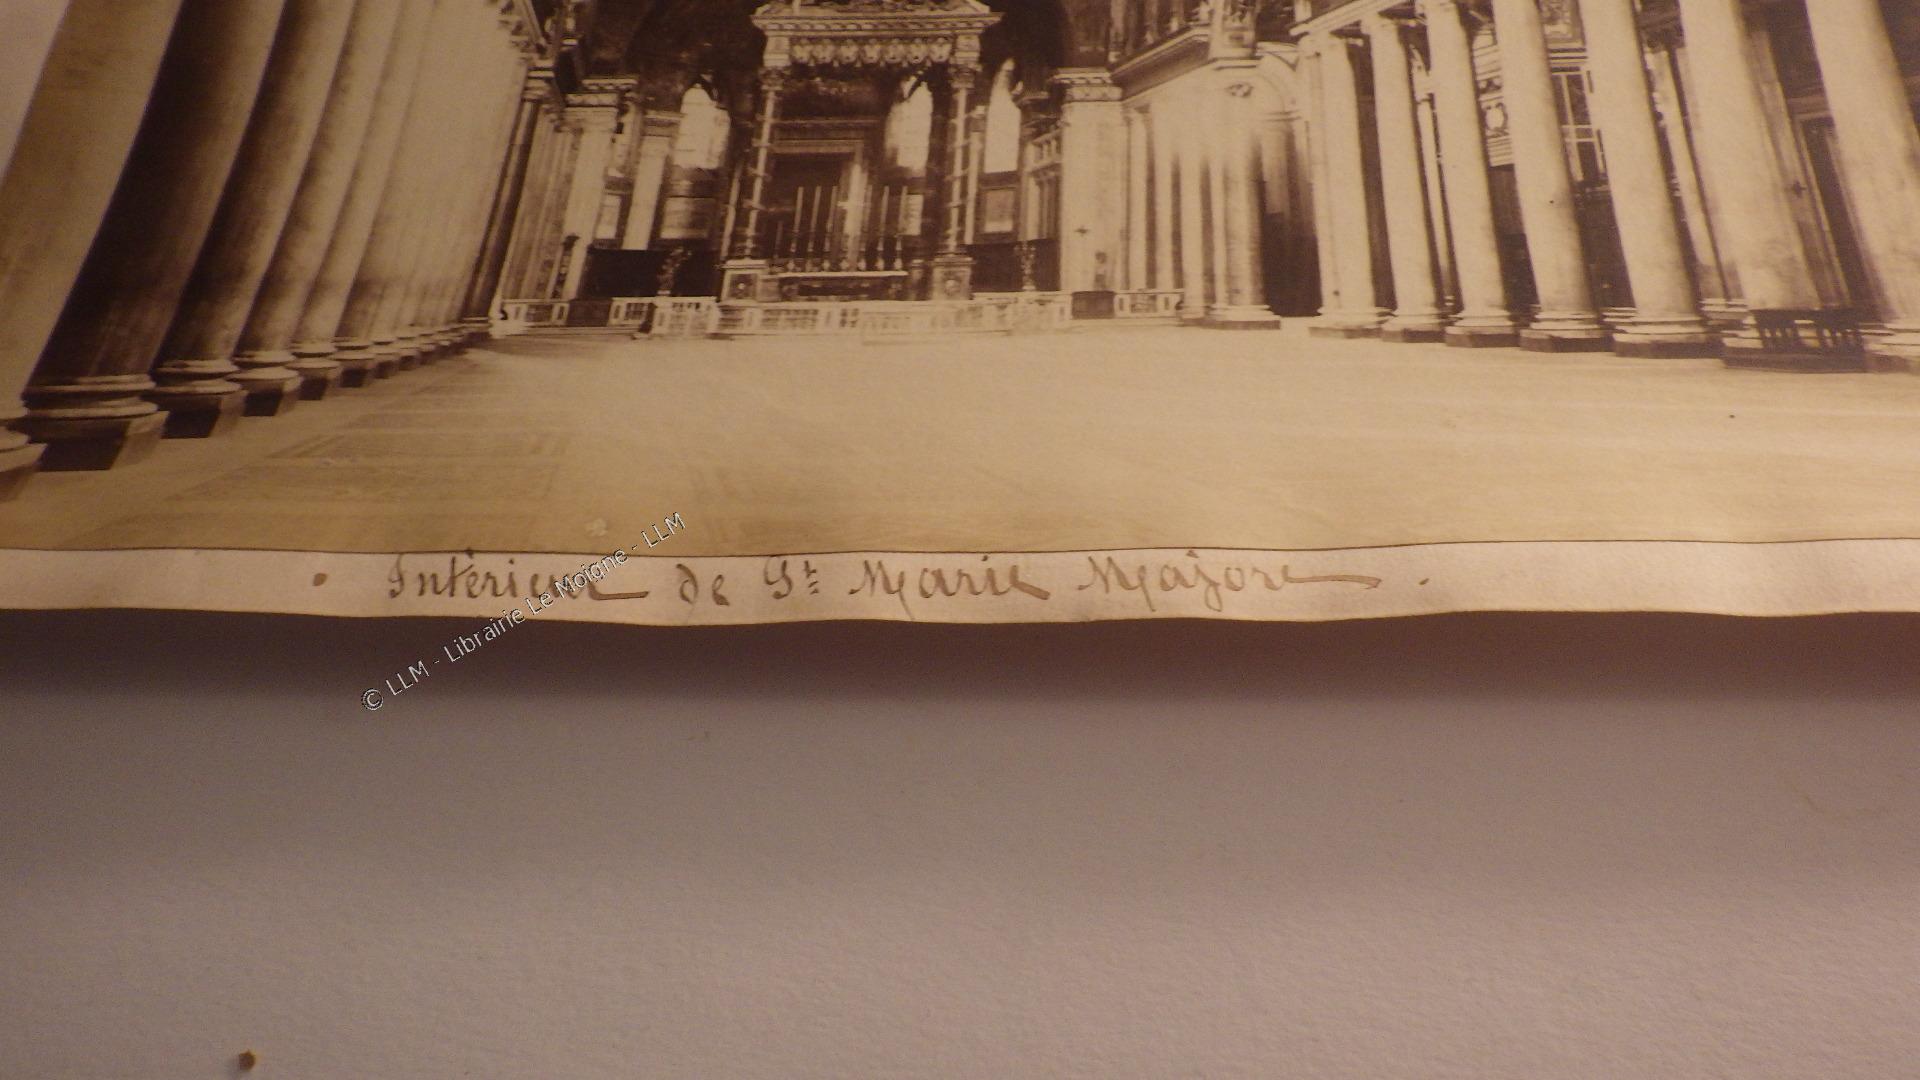 • Intérieur de St Marie Majore .
© LLM - Librairie Le Moigne - LLM